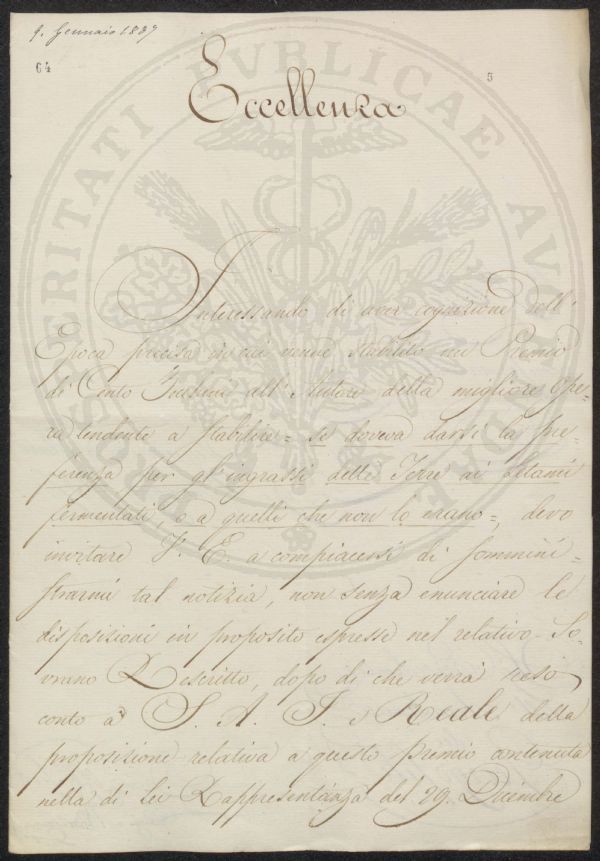 9. Gennaio 1839
64
5
Eccellenza
Interessando di aver cognizione dell'
Epoca precisa in cui venne stabilito un Premio
di Cento Zecchini all'Autore della migliore Ope-
ra tendente a stabilire = se doveva darsi la pre-
ferenza per gl'ingrassi delle Terre ai letami
fermentati, o a quelli che non lo erano =, devo
invitare V. E. a compiacersi di sommini-
strarmi tal notizia, non senza enunciare le
disposizioni in proposito espresse nel relativo So-
vrano Rescritto, dopo di che verrà reso
conto a S. A. I. e Reale della
proposizione relativa a questo premio contenuta
nella di Lei Rappresentanza del 29. Dicembre
PROSPERITATI PVBLICAE AVGENDAE